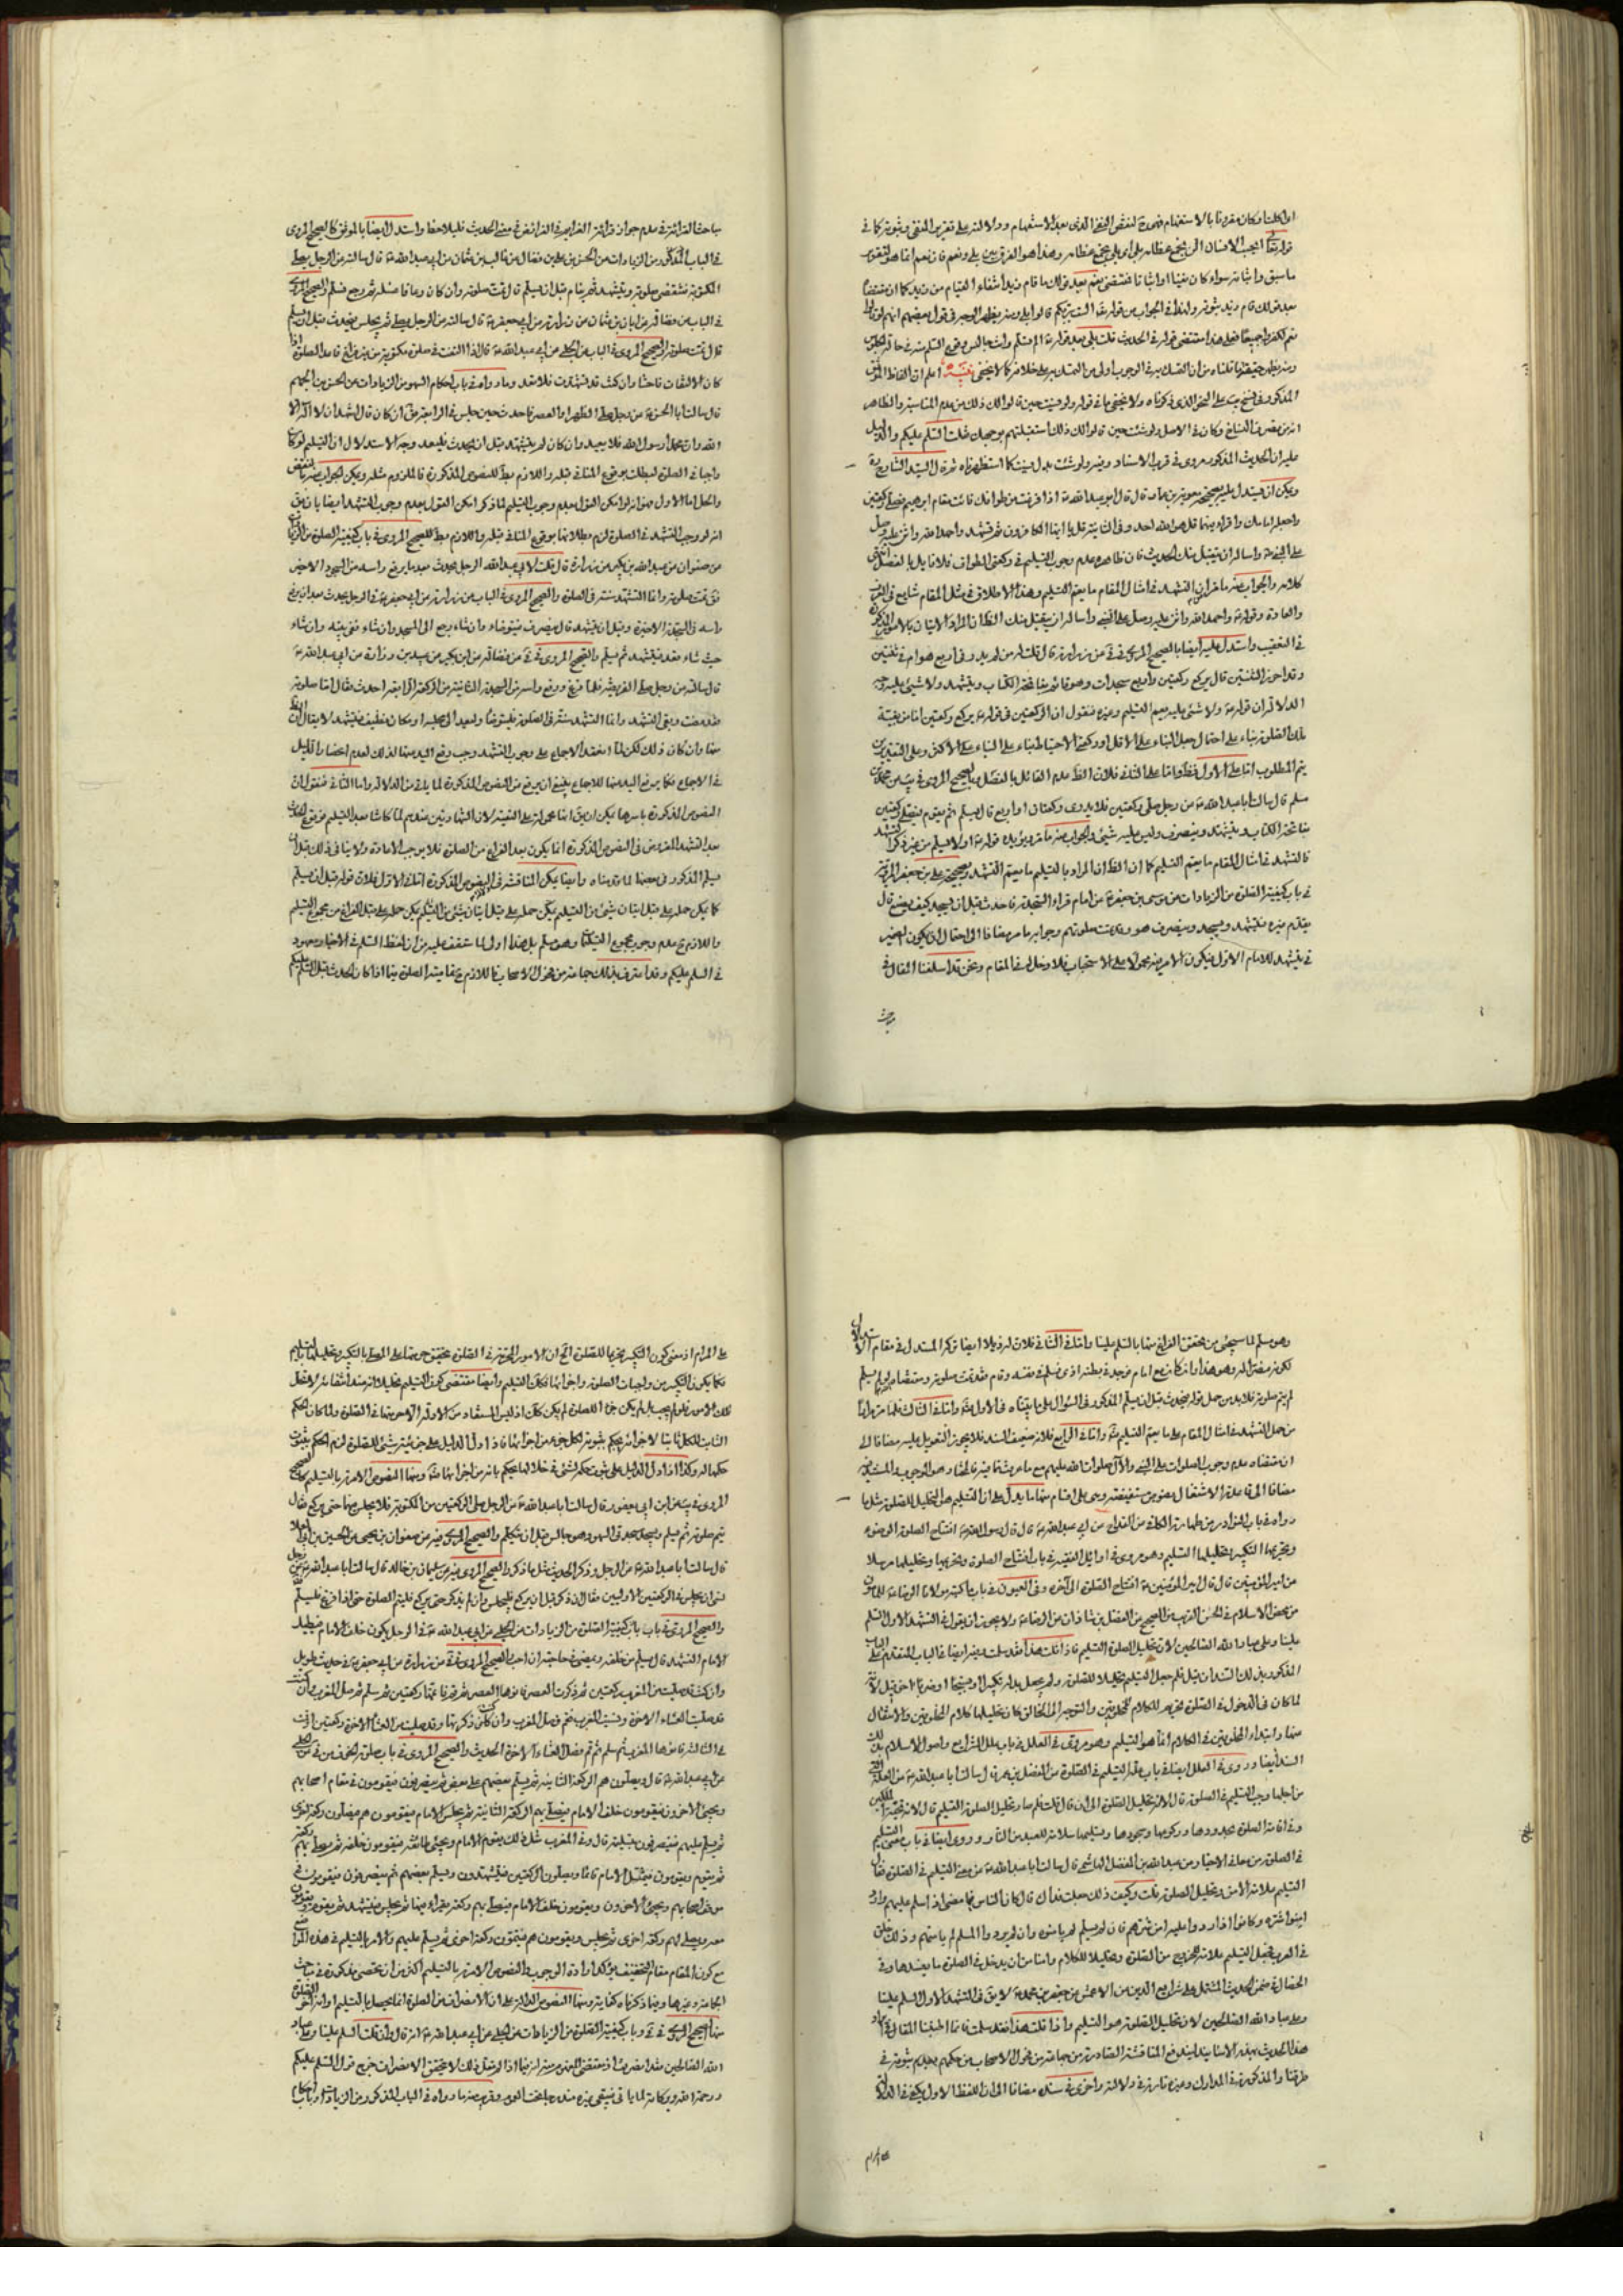 او كلنا وكان مقرونا بالاستفهام فهو لنقض النفى الذى بعد الاستفهام ودلالته على تقرير المنفى وثبوته كما فى
قوله تعالى ايحسب الانسان الن نجمع عظامه بلى اى بلى نجمع عظامه وهذا هو الفرق بين بلى ونعم فان نعم انما هو لتقرير
ما سبق واثباته سواء كان نفيا او اثباتا فمقتضى نعم بعد قولك ما قام زيد انتفاء القيام من زيد كما ان مقتضاها
بعد قولك قام زيد ثبوته ولذا فى الجواب من قوله تعالى الست بربكم قالوا بلى ومنه يظهر الوجه فى قول بعضهم انهم لو قالوا
نعم لكفروا جميعا فعلى هذا مقتضى قوله فى الحديث قلت بلى بعد قوله الم تسلم وانت جالس وقوع التسليم منه فى حالة الجلوس
ومنه يظهر حقيقة ما قلناه من ان التمسك به فى الوجوب اولى من التمسك به على خلافه كما لا يخفى تنبيه اعلم ان الفاظ
المذكور فى نسخ على النحو الذى ذكرناه ولا يخفى ما فى قوله ولو نسيت حين قالوا لك ذلك من عدم المناسبة والظاهر
انه من تصرف النساخ وكان فى الاصل ولو شئت حين قالوا لك ذلك استقبلتهم بوجهك فقلت السلم عليكم والدليل
عليه ان الحديث المذكور مروى فى قرب الاسناد وفيه ولو شئت بدل نسيت كما استظهرناه ثم قال السيد الشارح ره
ويمكن ان يستدل عليه بصحيحة معوية بن عمار قال قال ابو عبد الله ع اذا فرغت من طوافك فائت مقام ابرهيم فصل ركعتين
واجعله اماما واقرء فيهما قل هو الله احد وفى الثانية قل يا ايها الكافرون ثم تشهد واحمد الله واثن عليه وصل
على النبى ص واساله ان يتقبل منك الحديث فان ظاهره عدم وجوب التسليم فى ركعتى الطواف فلا قايل بالفصل انتهى
كلامه والجواب عنه ما غير ان التشهد فى امثال المقام ما يعم التسليم وهذا الاطلاق فى مثل المقام شايع فى العرف
والعادة وقوله ع واحمد الله واثن عليه وصل على النبى واساله ان يتقبل منك الظ ان المراد الاتيان بالامور المذكورة
فى التعقيب واستدل عليه ايضا بالصحيح المروى فى فى عن زرارة قال قلت له من لم يدر فى اربع هو ام فى ثنتين
وقد احرز الثنتين قال يركع ركعتين واربع سجدات وهو قائم بفاتحة الكتاب ويتشهد ولا شيئ عليه وجه
الدلالة ان قوله ع ولا شئ عليه يعم التسليم وغيره فنقول ان الركعتين فى قوله ع يركع ركعتين اما من بقية
تلك الصلوة بناء على احتمال جعل البناء على الاقل او ركعتى الاحتياط بناء على البناء على الاكثر وعلى التقديرين
يتم المطلوب اما على الاول فظ واما على الثانى فلان الظ عدم القائل بالفصل وبالصحيح المروى فى يب عن محمد بن
مسلم قال سالت ابا عبد الله ع عن رجل صلى ركعتين فلا يدرى ركعتان او اربع قال يسلم ثم يقوم فيصلى ركعتين
بفاتحة الكتاب ويتشهد وينصرف وليس عليه شيئ والجواب عنه ما مر ويؤيده قوله ع اولا يسلم من غير ذكر التشهد
فالتشهد فى امثال المقام ما يعم التسليم كما ان الظ ان المراد بالتسليم ما يعم التشهد وبصحيحة على بن جعفر المروية
فى باب كيفية الصلوة من الزيادات عن موسى بن جعفر ع عن امام قراء السجدة فاحدث قبل ان يسجد كيف يصنع قال
يقدم غيره فيتشهد ويسجد وينصرف هو وقد تمت صلوتهم وجوابه ما مر مضافا الى احتمال ان يكون الضمير
فى يتشهد للامام الاول فيكون الامر منه محمولا على الاستحباب فلا دخل له فى المقام ونحن قد اسلفنا المقال فى
مباحث
مباحث القرائة فى عدم جواز قرائة العزايم فى الفرائض فى معنى الحديث فليلاحظ واستدل ايضا بالموثق كالصحيح المروى
فى الباب المذكور من الزيادات عن الحسن بن على بن فضال عن غالب بن عثمان عن ابى عبد الله ع قال سالته عن الرجل يصلى
المكتوبة فتنقضى صلوته ويتشهد ثم ينام قبل ان يسلم قال تمت صلوته وان كان رعافا غسله ثم رجع فسلم والصحيح المروى
فى الباب عن فضالة عن ابان بن عثمان عن زرارة عن ابى جعفر ع قال سالته عن الرجل يصلى ثم يجلس فيحدث قبل ان يسلم
قال تمت صلوته والصحيح المروى فى الباب عن الحلبى عن ابى عبد الله ع قال اذا التفت فى صلوة مكتوبة من غير فراغ فاعد الصلوة اذا
كان الالتفات فاحشا وان كنت قد تشهدت فلا تعد وما رواه فى باب احكام السهو من الزيادات عن الحسن بن الجهم
قال سالت ابا الحسن ع عن رجل صلى الظهر او العصر فاحدث حين جلس فى الرابعة فق ان كان قال اشهد ان لا اله الا
الله وان محمدا رسول الله فلا يعيد وان كان لم يتشهد قبل ان يحدث فليعد وجه الاستدلال ان التسليم لو كان
واجبا فى الصلوة لبطلت بوقوع المنافى قبله واللازم بط للنصوص المذكورة فالملزوم مثله ويمكن الجواب عنه بالنقض
والحل اما الاول فهو انه لو امكن القول بعدم وجوب التسليم لما ذكر امكن القول بعدم وجوب التشهد ايضا بان يق
انه لو وجب التشهد فى الصلوة لزم بطلانها بوقوع المنافى قبله واللازم بط للصحيح المروى فى باب كيفية الصلوة من الزيادات
عن صفوان عن عبد الله بن بكير عن زرارة قال قلت لابى عبد الله الرجل يحدث بعد ما يرفع راسه من السجود الاخير
فق تمت صلوته وانما التشهد سنة فى الصلوة والصحيح المروى فى الباب عن زرارة عن ابى جعفر ع فى الرجل يحدث بعد ان يرفع
راسه فى السجدة الاخيرة وقبل ان يتشهد قال ينصرف فيتوضاء وان شاء رجع الى المسجد وان شاء ففى بيته وان شاء
حيث شاء يقعد فيتشهد ثم يسلم والصحيح المروى فى فى عن فضالة عن ابن بكير عن عبيد بن زرارة عن ابى عبد الله ع
قال سالته عن رجل صلى الفريضة فلما فرغ ورفع راسه من السجدة الثانية من الركعة الرابعة احدث فقال اما صلوته
فقد مضت وبقى التشهد وانما التشهد سنة فى الصلوة فليتوضأ وليعد الى مجلسه او مكان نظيف فيتشهد لا يقال ان الظ
منها وان كان ذلك لكن لما انعقد الاجماع على وجوب التشهد وجب رفع اليد عنها لذلك لعدم
فى الاجماع فكما يرفع اليد عنها للاجماع ينبغى ان يرفع من النصوص المذكورة لما ياتى من الدلالة واما الثانى فنقول ان
النصوص المذكورة باسرها يمكن ان يق انها محمولة على التقية لان الشهادتين عندهم لما كانتا بعد التسليم فوقوع الحدث
بعد التشهد المفروض فى النصوص المذكورة انما يكون بعد الفراغ من الصلوة فلا يوجب الاعادة ولا ينافى ذلك قبل ان
يسلم المذكور فى بعضها لما قدمناه وايضا يمكن المناقشة فى النصوص المذكورة اما فى الاول فلان قوله قبل ان يسلم
كما يمكن حمله على قبل اتيان شيئ من التسليم يمكن حمله على قبل الفراغ من مجموع التسليم
واللازم ع عدم وجوب مجموع التسليم وهو مسلم بل هذا اولى لما ستقف عليه من ان لفظ السلم فى الاخبار معهود
فى السلم عليكم وقد اعترف بذلك جماعة من فحول الاصحاب فاللازم صحة الصلوة فيما اذا كان الحدث قبل السلم عليكم
وهو مسلم لما سيجئ من تحقق الفراغ منها بالسلم علينا واما فى الثانى فلان له ذيلا ايضا تركه المستدل فى مقام الاستدلال
لكونه مضرا له وهو هذا وان كان مع امام فوجد فى بطنه اذى فسلم فى نفسه وقام فقد تمت صلوته ومقتضاه لو لم يسلم
لم يتم صلوته فلا بد من حمل قوله فيحدث قبل ان يسلم المذكور فى السؤال على ما بيناه فى الاول واما فى الثالث فلما مر مرارا
من حمل التشهد فى امثال المقام على ما يعم التسليم واما فى الرابع فلانه ضعيف السند فلا يجوز التعويل عليه مضافا الى
ان مقتضاه عدم وجوب الصلوات على النبى والآل صلوات الله عليهم مع ما عرفت
مضافا الى قاعدة الاشتغال نصوص مستفيضة وهى على اقسام منها ما يدل على ان التسليم هو التحليل للصلوة مثل ما
رواه فى باب النوادر من طهارة الكافى عن القداح عن ابى عبد الله ع قال قال رسول الله ص افتتاح الصلوة الوضوء
وتحريمها التكبير وتحليلها التسليم وهو مروى فى اوائل الفقيه فى باب افتتاح الصلوة وتحريمها وتحليلها مرسلا
عن امير المؤمنين قال قال امير المؤمنين ع افتتاح الصلوة الى آخره وفى العيون فى باب ما كتبه مولانا الرضا ع للمامون
من محض الاسلام فى الحسن القريب من الصحيح عن الفضل بن شاذان عن الرضا ع ولا يجوز ان يقول فى التشهد الاول السلم
علينا وعلى عباد الله الصالحين لان تحليل الصلوة التسليم فاذا قلت هذا فقد سلمت وفيه ايضا فى الباب المتقدم على الباب
المذكور بذلك السند ان قيل فلم جعل التسليم تحليلا للصلوة ولم يجعل بدله تكبيرا او تسبيحا او ضربا اخر قيل لانه
لما كان فى الدخول فى الصلوة تحريم الكلام للمخلوقين والتوجه الى الخالق كان تحليلها كلام المخلوقين والانتقال
عنها وابتداء المخلوقين فى الكلام انما هو التسليم وهو مروى فى العلل فى باب علل الشرايع واصول الاسلام بذلك
السند ايضا وروى فى العلل ايضا فى باب علة التسليم فى الصلوة عن المفضل بن عمر قال سالت ابا عبد الله ع عن العلة التى
من اجلها وجب التسليم فى الصلوة قال لانه تحليل الصلوة الى ان قال قلت فلم صار تحليل الصلوة التسليم قال لانه تحية الملكين
وفى اقامة الصلوة بحدودها وركوعها وسجودها وتسليمها سلامة للعبد من النار وروى ايضا فى باب معنى التسليم
فى الصلوة من معانى الاخبار عن عبد الله بن الفضل الهاشمى قال سالت ابا عبد الله ع عن معنى التسليم فى الصلوة فقال
التسليم علامة الامن وتحليل الصلوة قلت وكيف ذلك جعلت فداك قال كان الناس فيما مضى اذا سلم عليهم وارد
امنوا شره وكانوا اذا ردوا عليه امن شرهم فان لم يسلم لم يامنوه وان لم يردوا على المسلم لم يامنهم وذلك خلق
فى العرب فجعل التسليم علامة للخروج من الصلوة وتحليلا للكلام وامنا من ان يدخل فى الصلوة ما يفسدها وفى
الخصال فى ضمن الحديث المشتمل على شرايع الدين عن الاعمش عن جعفر بن محمد ع لا يق فى التشهد الاول السلم علينا
وعلى عباد الله الصالحين لان تحليل الصلوة هو التسليم واذا قلت هذا فقد سلمت فانما اطنبنا المقال فى ايراد
هذا الحديث بهذه الاسانيد ليندفع المناقشة الصادرة من جماعة من فحول الاصحاب من حكمهم بعدم ثبوته فى
طرقنا والمذكورة فى المدارك وغيره تارة فى دلالته واخرى فى سنده مضافا الى ان اللفظ الاول يكفى فى الدلالة
على المرام
على المرام اذ معنى كون التكبير تحريما للصلوة اتج ان الامور المحرمة فى الصلوة يتحقق حرمتها على المصلى بالتكبير وتحليلها بالتسليم
فكما يكون التكبير من واجبات الصلوة واجزائها فكك التسليم وايضا مقتضى كون التسليم تحليلا انه عند انتفائه لا تحل
تلك الامور فلو لم يجب بل لم يكن جزءا للصلوة لم يكن كك اذ ليس المستفاد من الادلة الا حرمتها فى الصلوة ولما كان الحكم
الثابت للكل ثابتا لاجزائه يحكم بثبوته لكل جزء من اجزائها فاذا دل الدليل على جزئية شئ للصلوة لزم الحكم بثبوت
حكمها له وكذا اذا دل الدليل على ثبوت حكم لشئ فى خلالها يحكم بانه من اجزائها ومنها النصوص الامرة بالتسليم كالصحيح
المروى فى يب عن ابن ابى يعفور قال سالت ابا عبد الله ع عن الرجل يصلى الركعتين من المكتوبة فلا يجلس فيهما حتى يركع فقال
يتم صلوته ثم يسلم ويسجد سجدتى السهو وهو جالس قبل ان يتكلم والصحيح المروى فيه عن صفوان بن يحيى عن الحسين بن ابى العلا
قال سالت ابا عبد الله ع عن الرجل وذكر الحديث مثل ما ذكر والصحيح المروى فيه عن سليمان بن خالد قال سالت ابا عبد الله ع عن رجل
نسى ان يجلس فى الركعتين الاوليين فقال ان ذكر قبل ان يركع فليجلس وان لم يذكر حتى يركع فليتم الصلوة حتى اذا فرغ فليسلم
والصحيح المروى فى باب كيفية الصلوة من الزيادات عن الحلبى عن ابى عبد الله ع فى الرجل يكون خلف الامام فيطيل
الامام التشهد قال يسلم من خلفه ويمضى فى حاجته ان احب والصحيح المروى فى فى عن زرارة عن ابى جعفر ع فى حديث طويل
وان كنت قد صليت من المغرب ركعتين ثم ذكرت العصر فانوها العصر ثم قم فاتمها ركعتين ثم سلم ثم صل المغرب وان كنت
قد صليت العشاء الاخرة ونسيت المغرب فقم فصل المغرب وان كنت ذكرتها وقد صليت من العشاء الاخرة ركعتين او قمت
فى الثالثة فانوها المغرب ثم سلم ثم قم فصل العشاء الاخرة الحديث والصحيح المروى فى باب صلوة الخوف من فى عن الحلبى
عن ابى عبد الله ع قال ويصلون هم الركعة الثانية ثم يسلم بعضهم على بعض ثم ينصرفون فيقومون فى مقام اصحابهم
ويجيئ الاخرون فيقومون خلف الامام فيصلى بهم الركعة الثانية ثم يجلس الامام فيقومون هم فيصلون ركعة اخرى
ثم يسلم عليهم فينصرفون بتسليمه قال وفى المغرب مثل ذلك يقوم الامام ويجيئ طائفة فيقومون خلفه ثم يصلى بهم ركعة
ثم يقوم ويقومون فيمثل الامام قائما ويصلون الركعتين فيتشهدون ويسلم بعضهم ثم ينصرفون فيقومون فى
موقف اصحابهم ويجيئ الاخرون ويقومون خلف الامام فيصلى بهم ركعة يقرء فيها ثم يجلس فيتشهد ثم يقوم ويقومون
معه ويصلى بهم ركعة اخرى ثم يجلس ويقومون هم فيتمون ركعة اخرى ثم يسلم عليهم والامر بالتسليم فى هذه المواضع
مع كون المقام مقام التخفيف يؤكد ارادة الوجوب والنصوص الامرة بالتسليم اكثر من ان تحصى مذكورة فى مباحث
الجماعة وغيرها وفيما ذكرناه كفاية ومنها النصوص الدالة على ان الانصراف من الصلوة انما يحصل بالتسليم او انه اخر الصلوة
منها الصحيح المروى فى فى وباب كيفية الصلوة من الزيادات عن الحلبى عن ابى عبد الله ع انه قال وان قلت السلم علينا وعلى عباد
الله الصالحين فقد انصرفت اذ مقتضى المفهوم انه اذا لم يقل ذلك لا يتحقق الانصراف خرج قول السلم عليكم
ورحمة الله وبركاته لما ياتى فيبقى غيره مندرجا تحت العموم وقريب منه ما رواه فى الباب المذكور من الزيادات وباب احكام